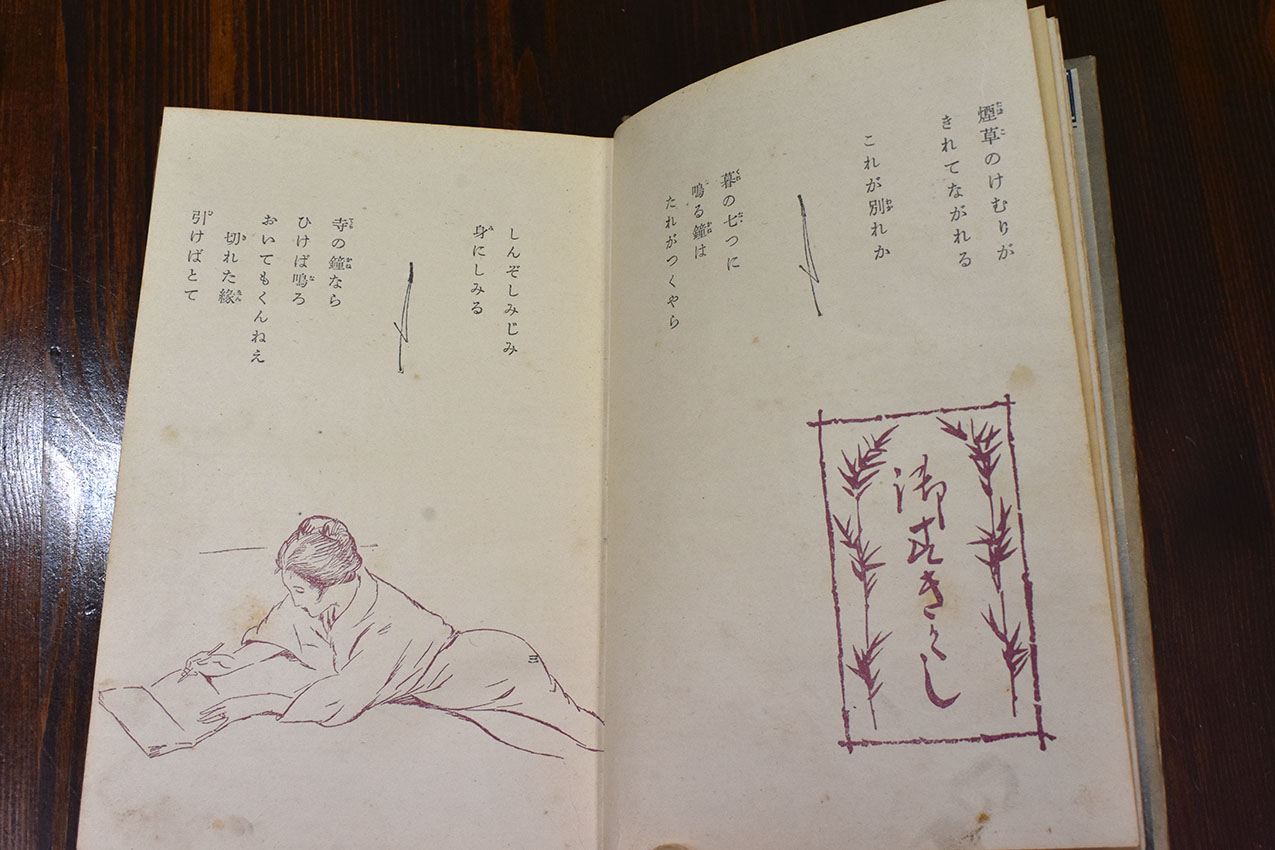 煙草のけむりが
きれてながれる
これが別れか
暮の七つに
鳴る鐘は
たれがつくやら
しんぞしみじみ
身にしみる
寺の鐘なら
ひけば鳴ろ
おいてもくんねえ
切れた縁
引けばとて
三